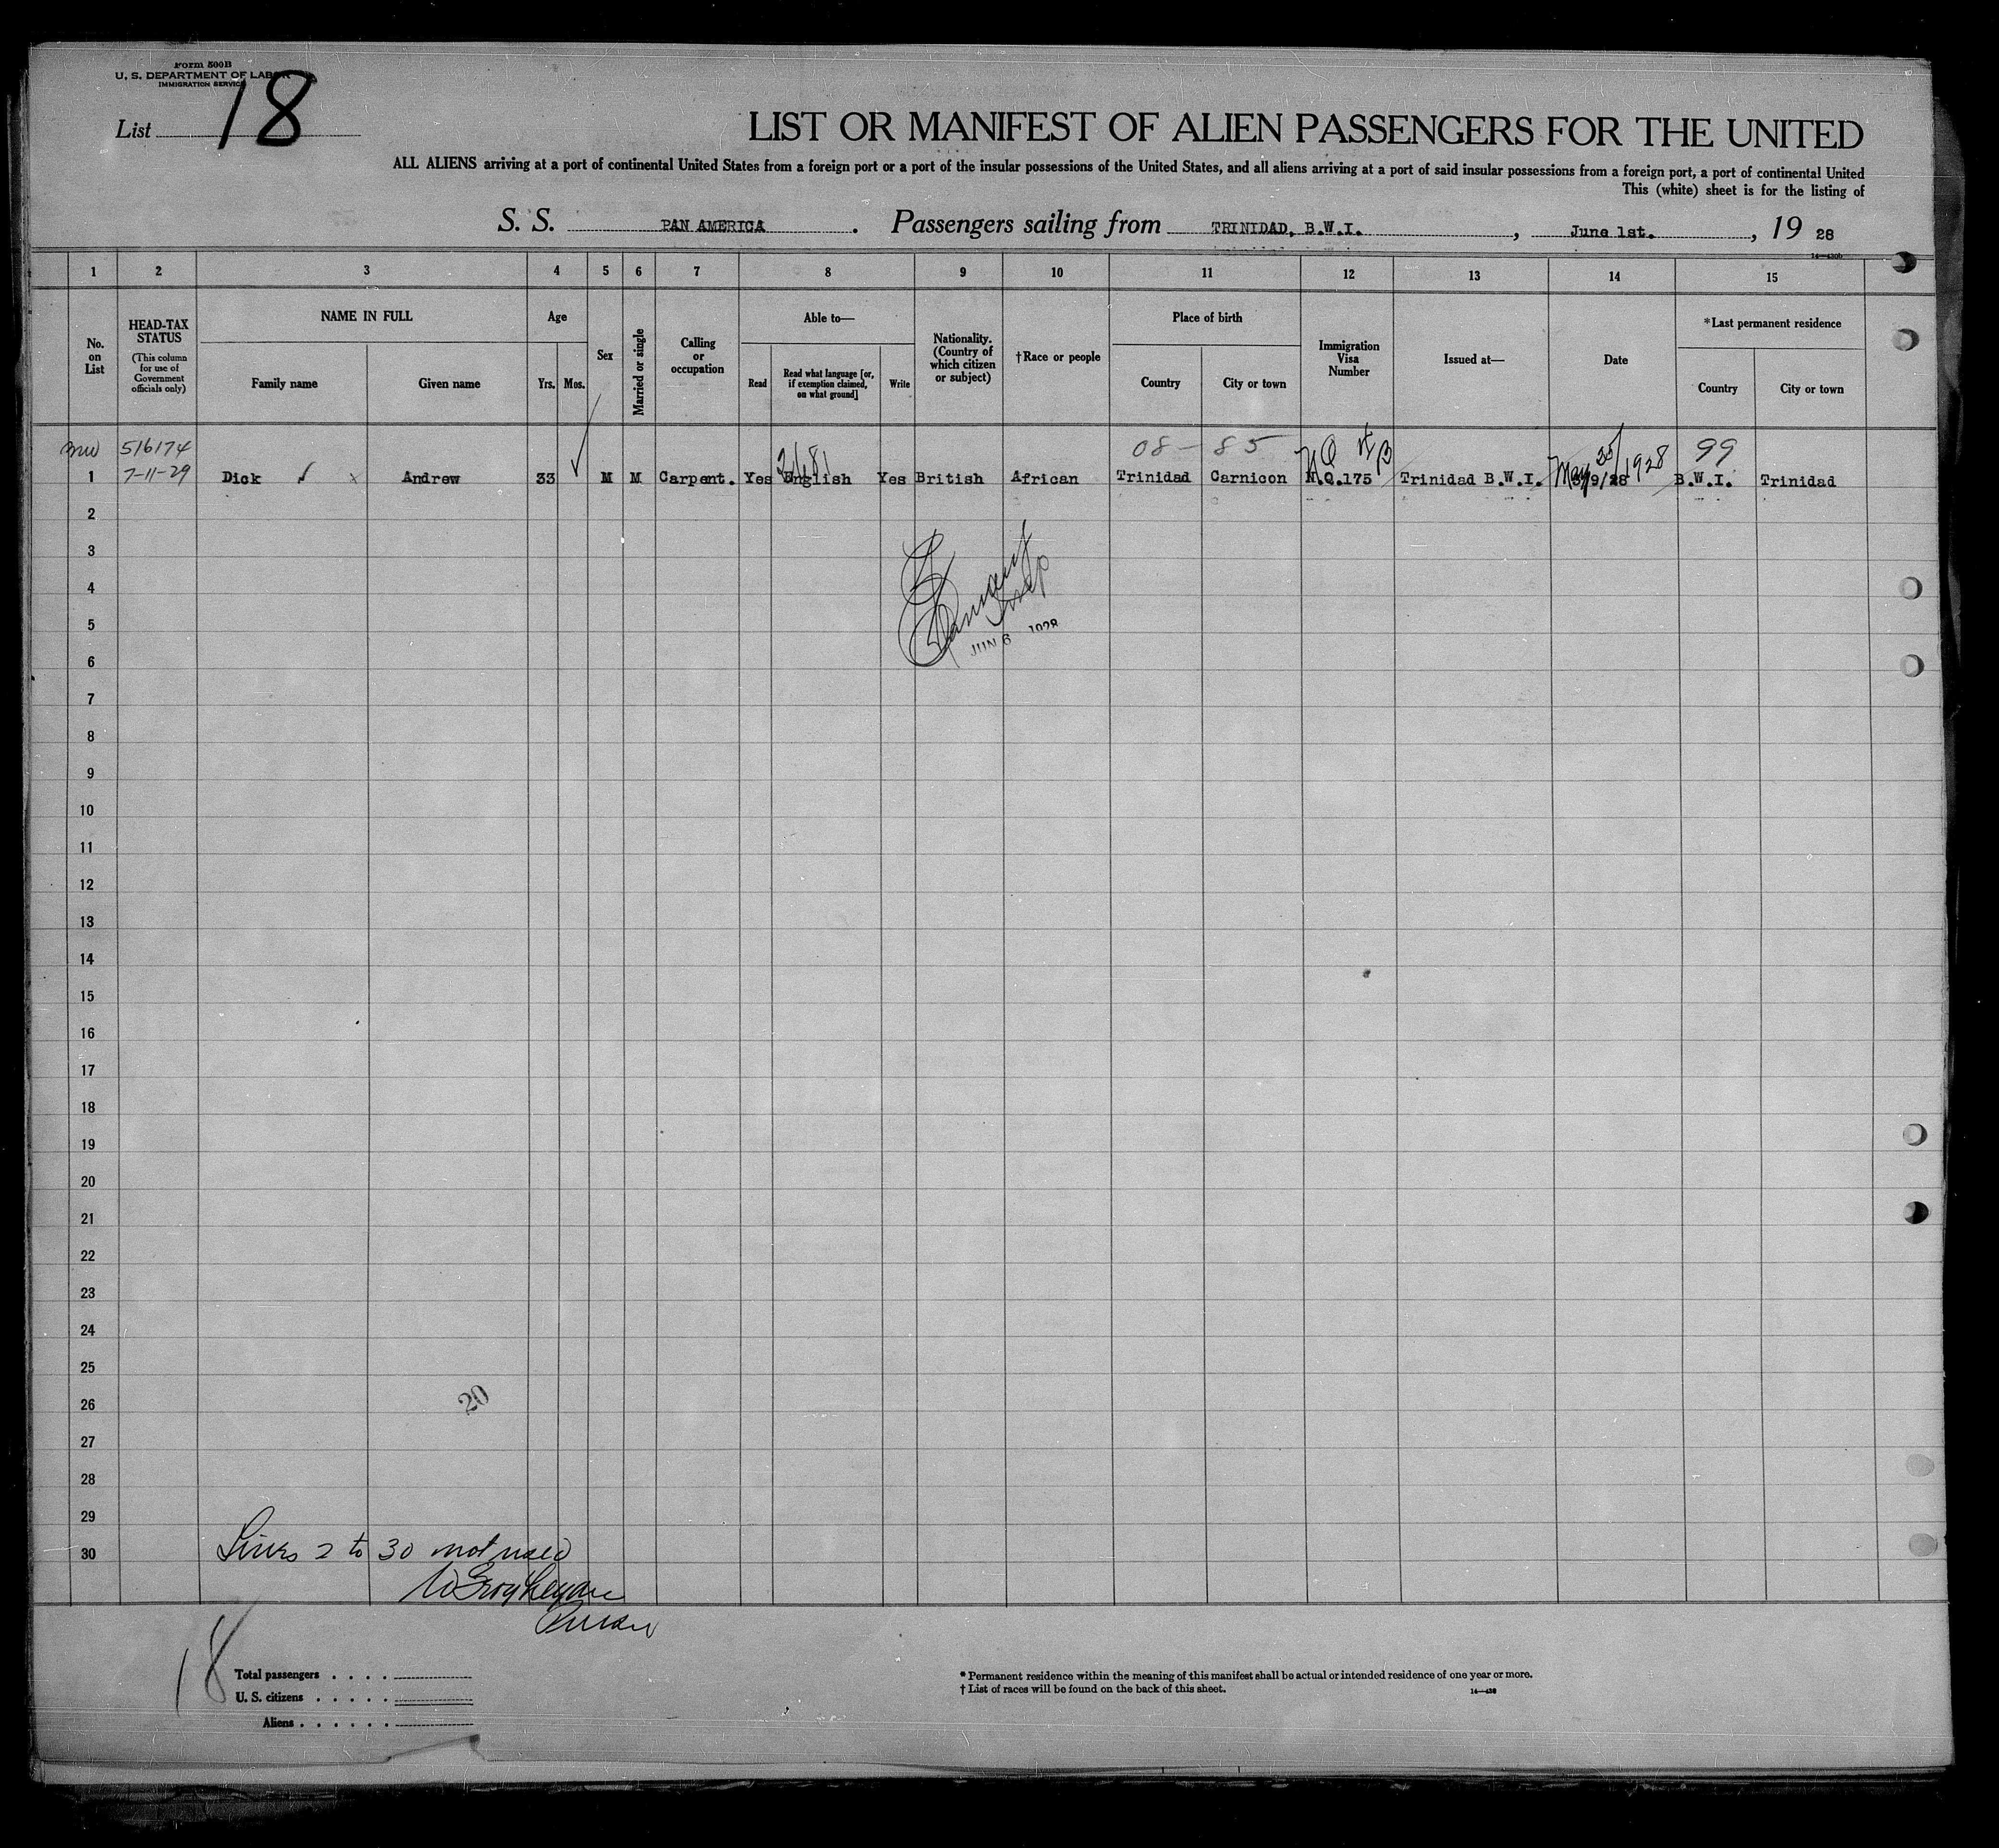 Form 500B
U. S. DEPARTMENT OF LABOR
IMMIGRATION SERVICE
List 18
LIST OR MANIFEST OF ALIEN PASSENGERS FOR THE UNITED
ALL ALIENS arriving at a port of continental United States from a foreign port or a port of the insular possessions of the United States, and all aliens arriving at a port of said insular possessions from a foreign port, a port of continental United
This (white) sheet is for the listing of
S. S. PAN AMERICA . Passengers sailing from TRINIDAD, B.W.I. , June 1st. , 19 28
1 2 3 4 5 6 7 8 9 10 11 12 13 14 15
No. on List
HEAD-TAX STATUS
(This column for use of Government officials only)
NAME IN FULL
Family name
Given name
Age
Yrs.
Mos.
Sex
Married or single
Calling or occupation
Able to—
Read
Read what language [or, if exemption claimed, on what ground]
Write
Nationality. (Country of which citizen or subject)
†Race or people
Place of birth
Country
City or town
Immigration Visa Number
Issued at—
Date
*Last permanent residence
Country
City or town
516174 08 - 85 NQ 99
1 7-11-29 Dick Andrew 33 M M Carpent. Yes English Yes British African Trinidad Carnicon N.Q.175 Trinidad B.W.I. May 1928 B.W.I. Trinidad
2
3
4
5
JUN 6 1928
6
7
8
9
10
11
12
13
14
15
16
17
18
19
20
21
22
23
24
25
26
20
27
28
29
30 Lines 2 to 30 not used
Purser
18
Total passengers . . . .
U. S. citizens . . . . .
Aliens . . . . . .
* Permanent residence within the meaning of this manifest shall be actual or intended residence of one year or more.
† List of races will be found on the back of this sheet.